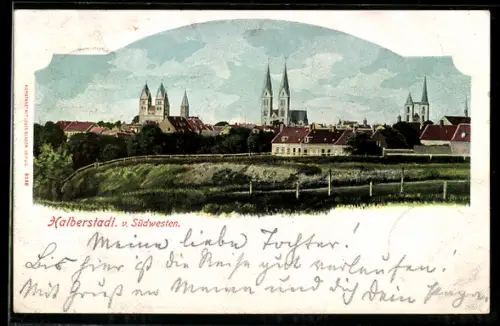 Halberstadt. v. Südwesten.
Meine liebe Tochter!
Bis hier ist die Reise gut verlaufen!
Mit Gruß an Mema und dich Dein Papa